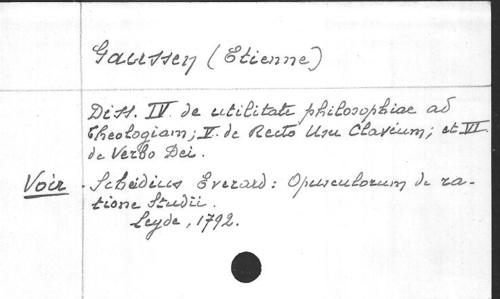 Gaussen (Etienne)
Diss. IV. de utilitate philosophiae ad
Theologiam; V. de Recto Usu Clavium; et VI.
de Verbo Dei.
Voir. Scheidius Everard: Opusculorum de ra-
tione Studii.
Leyde, 1792.